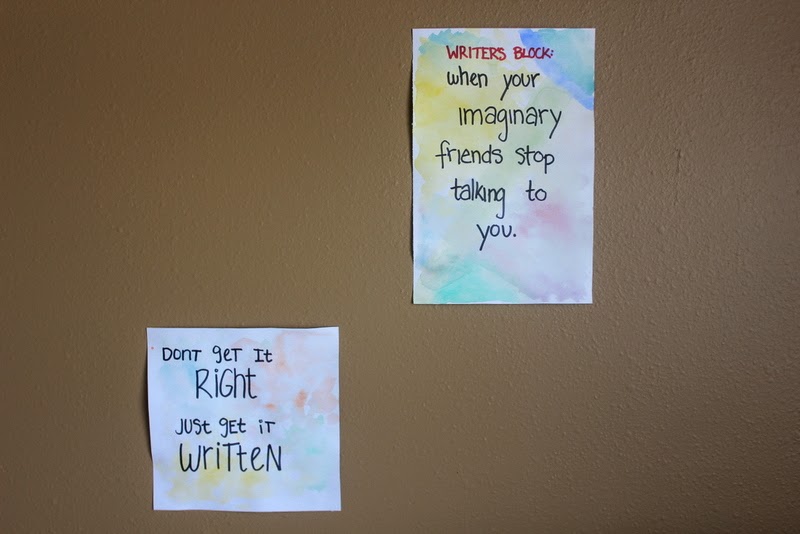 WRITERS BLOCK:
when your
imaginary
friends stop
talking to
you.
DONT get It
RiGht
JUSt get iT
WriTteN